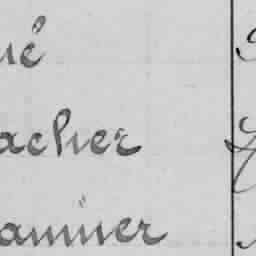 ué
acher
aunier